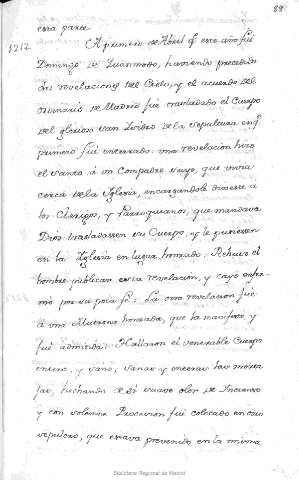 88
esta parte.
1212
A primero de Abril de este año fué
Domingo de Quasimodo, haviendo precedido
dos revelaciones del Cielo, y el acuerdo del
de Madrid fué trasladado el Cuerpo
del glorioso San Isidro de la sepultura en q.
primero fué enterrado: una revelacion hizo
el Santo á un Compadre suyo, que vivia
cerca de la Iglesia, encargandole dixesse á
los Clerigos, y Parroquianos, que mandava
Dios trasladassen su Cuerpo, y le pusiessen
en la Iglesia en lugar honrado: Rehusó el
hombre publicar esta revelacion, y cayó enfer-
mo por su poca fé: La otra revelacion fué
á una Matrona honrada, que la manifestó, y
fué admitida: Hallaron el venerable Cuerpo
entero, y sano, sanas y enteras las morta
jas, hechando de si suave olor de Incienso
y con solemne Procesion fué colocado en otro
sepulcro, que estava prevenido en la misma
Biblioteca Regional de Madrid